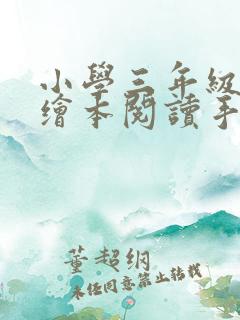 小學三年級
繪本閱讀手
董超綱
未經同意禁止轉載